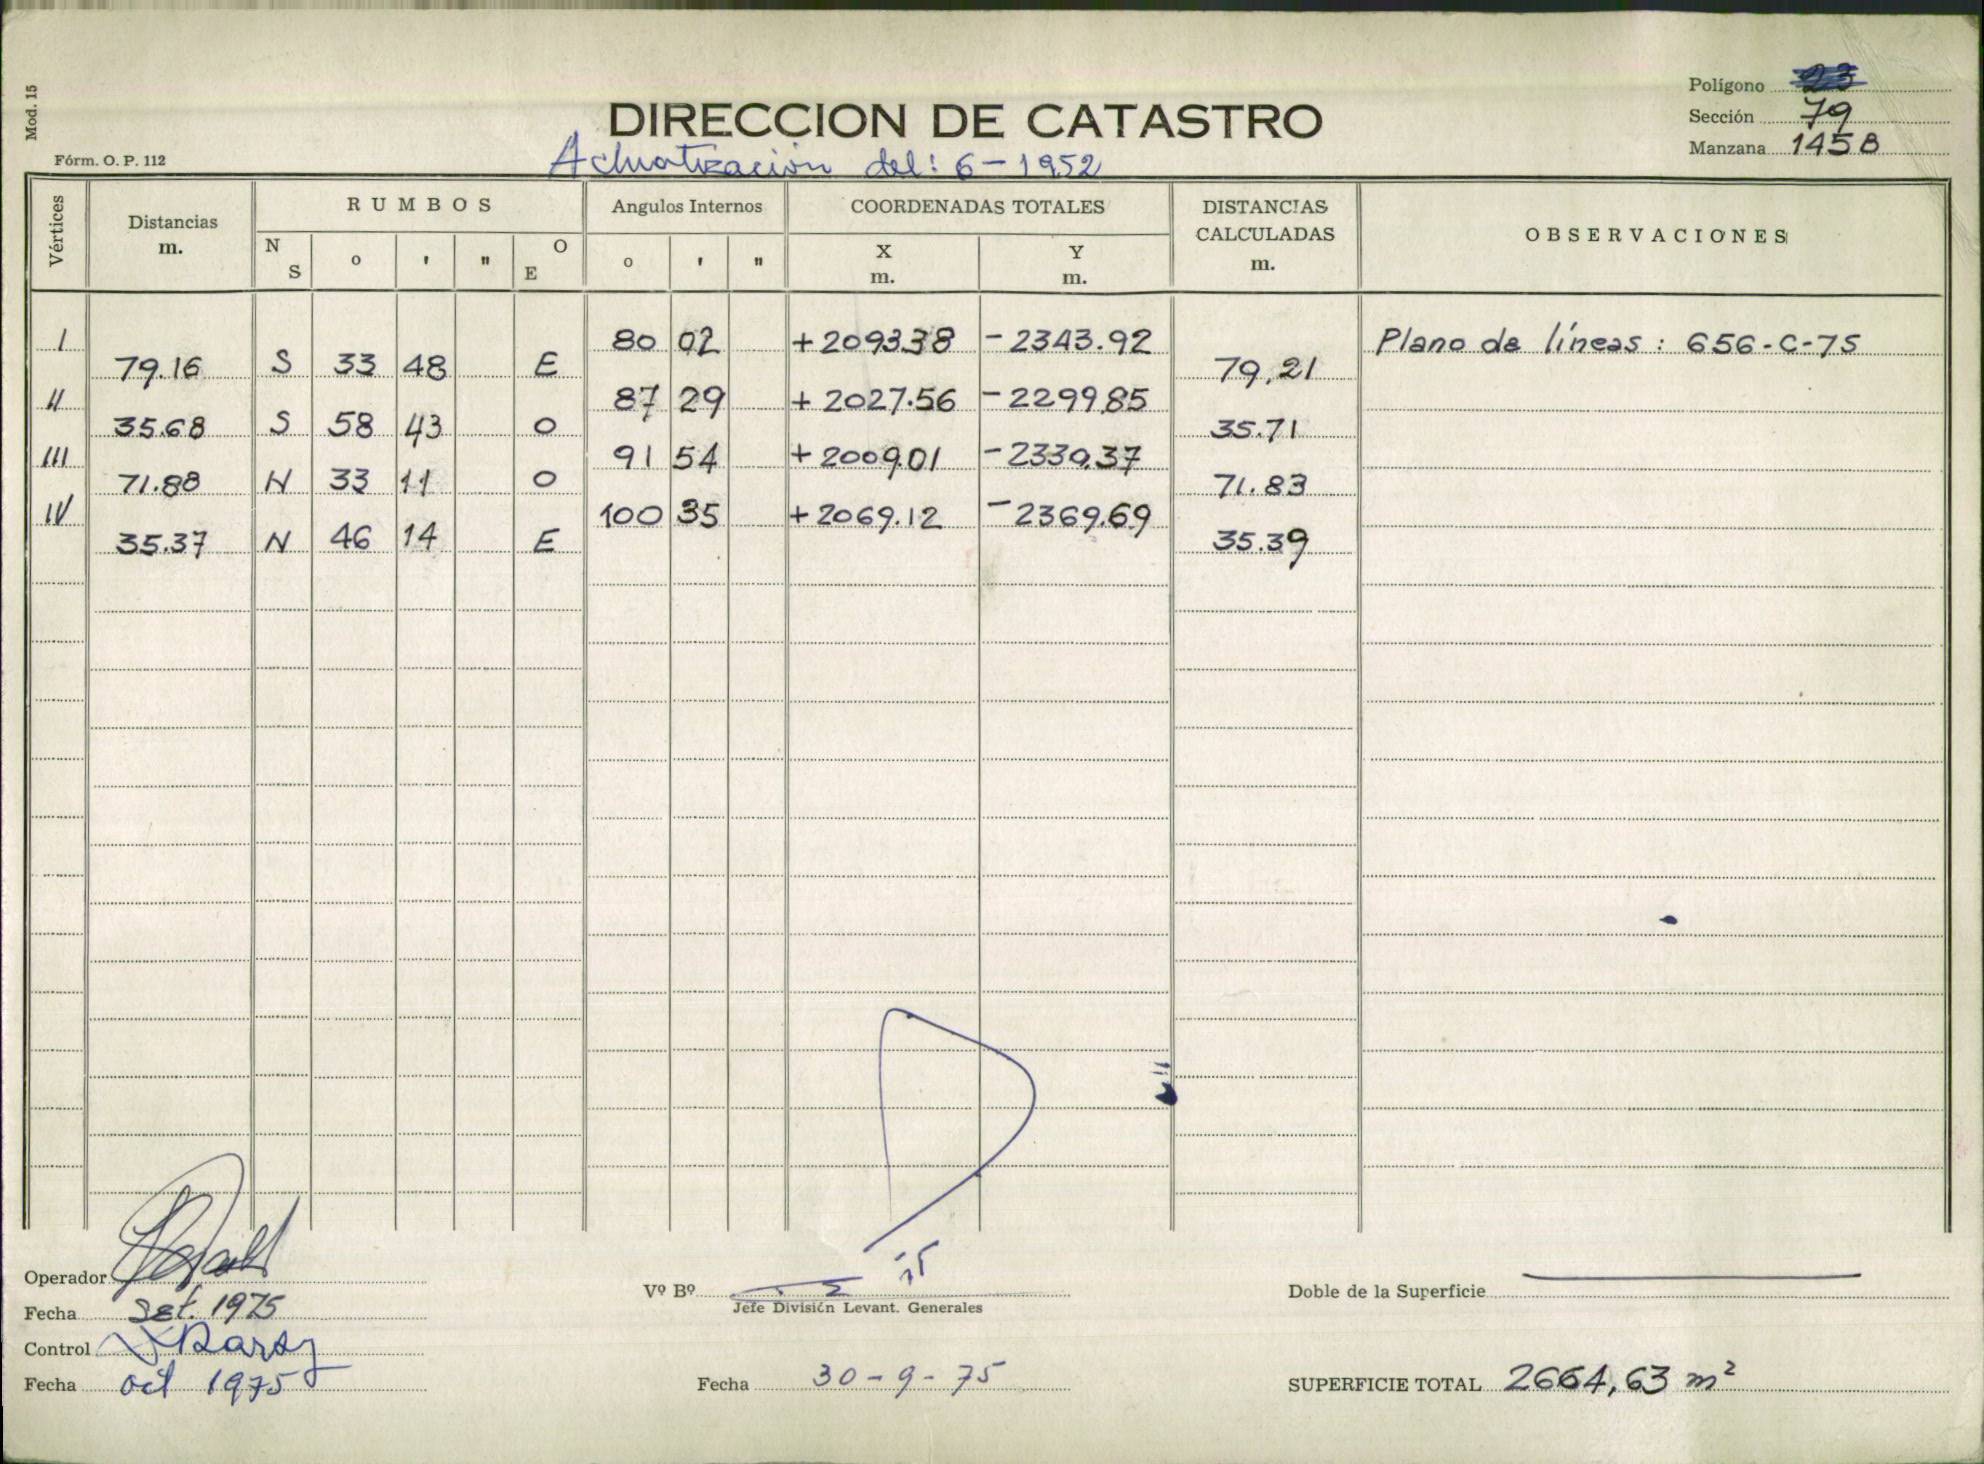 Mod. 15
Fórm. O. P. 112
DIRECCION DE CATASTRO
Actualización del: 6-1952
Polígono 23
Sección 79
Manzana 1458
Vértices
Distancias m.
RUMBOS
N S ° ' " O E
Angulos Internos
° ' "
COORDENADAS TOTALES
X m. Y m.
DISTANCIAS CALCULADAS m.
OBSERVACIONES
I 80 02 +2093.38 -2343.92 Plano de líneas: 656-C-75
79.16 S 33 48 E 79,21
II 87 29 +2027.56 -2299.85
35.68 S 58 43 O 35.71
III 91 54 +2009.01 -2330.37
71.88 N 33 11 O 71.83
IV 100 35 +2069.12 -2369.69
35.37 N 46 14 E 35.39
Operador
Fecha Set. 1975
Control
Fecha oct 1975
Vº Bº
Jefe División Levant. Generales
Fecha 30-9-75
Doble de la Superficie
SUPERFICIE TOTAL 2664,63 m²